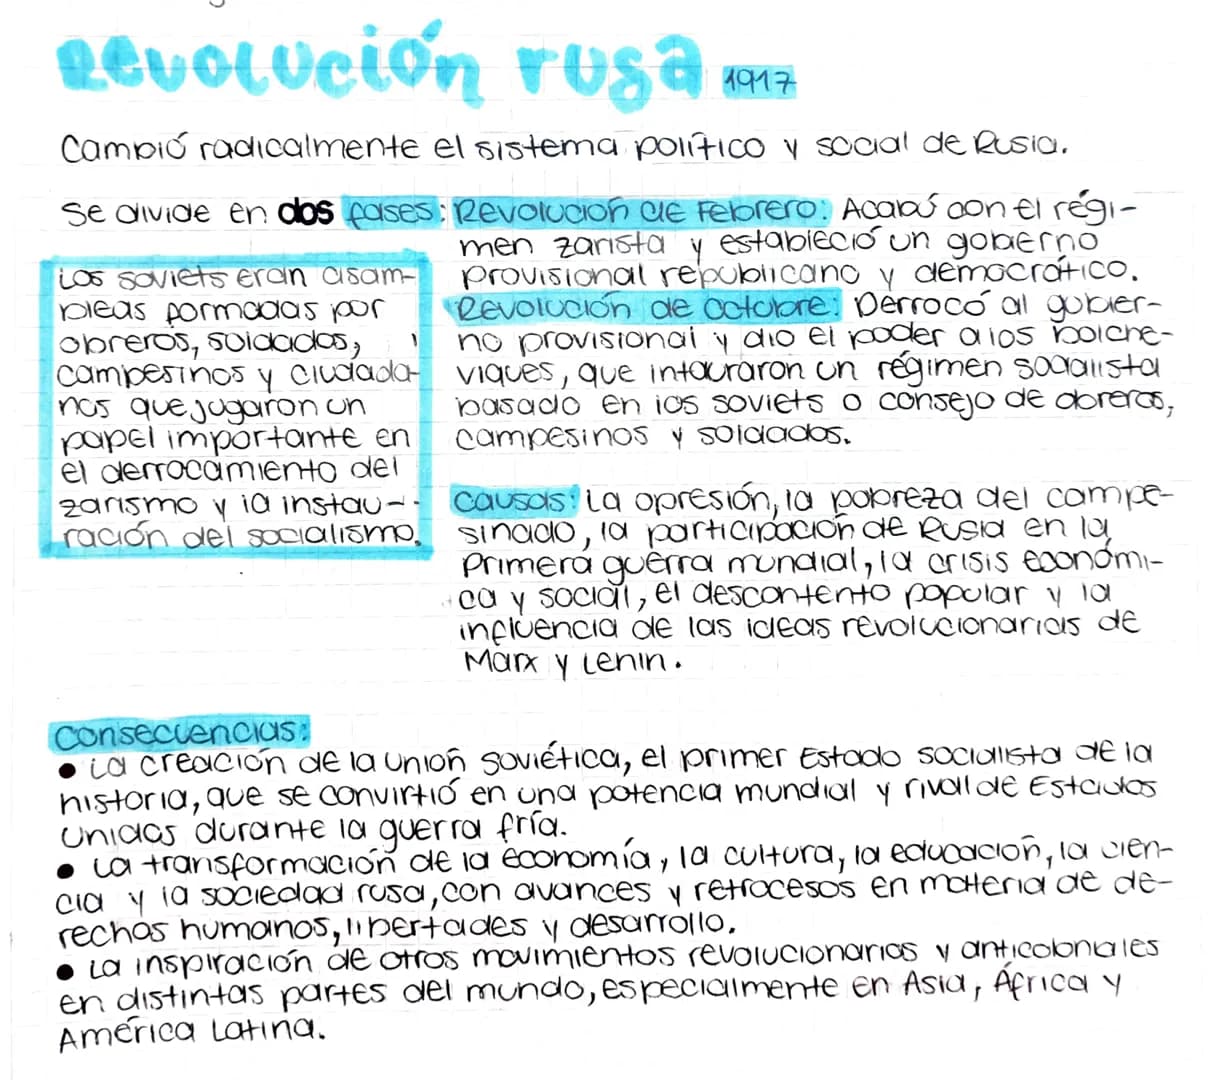 Revolución rusa 1917
Cambió radicalmente el sistema político y social de Rusia.
Se divide en dos fases:
Los soviets eran asam-
bleas formadas por
obreros, soldados,
campesinos y ciudada-
nos que jugaron un
papel importante en
el derrocamiento del
zarismo y la instau-
ración del socialismo.
Revolución de Febrero: Acabó con el régi-
men zarista y estableció un gobierno
provisional republicano y democrático.
Revolución de Octubre: Derrocó al gobier-
no provisional y dio el poder a los bolche-
viques, que intauraron un régimen socialista
basado en los soviets o consejo de obreros,
campesinos y soldados.
Causas: La opresión, la pobreza del campe-
sinado, la participación de Rusia en la
Primera guerra mundial, la crisis económi-
ca y social, el descontento popular y la
influencia de las ideas revolucionarias de
Marx y Lenin.
Consecuencias:
• La creación de la unión soviética, el primer Estado socialista de la
historia, que se convirtió en una potencia mundial y rival de Estados
Unidos durante la guerra fría.
• La transformación de la economía, la cultura, la educación, la cien-
cia y la sociedad rusa, con avances y retrocesos en materia de de-
rechos humanos, libertades y desarrollo.
• La inspiración de otros movimientos revolucionarios y anticoloniales
en distintas partes del mundo, especialmente en Asia, África y
América Latina.